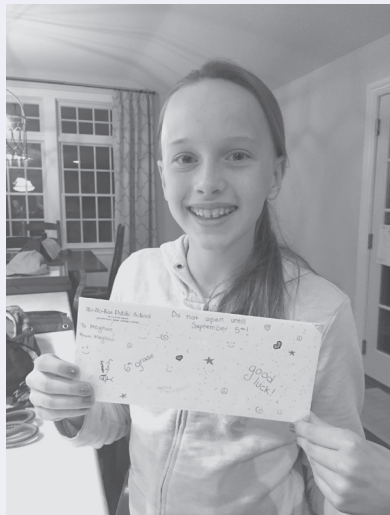 Public School
Do not open until
September 5th!
To Meghan
From Meghan
6th grade
good
luck!